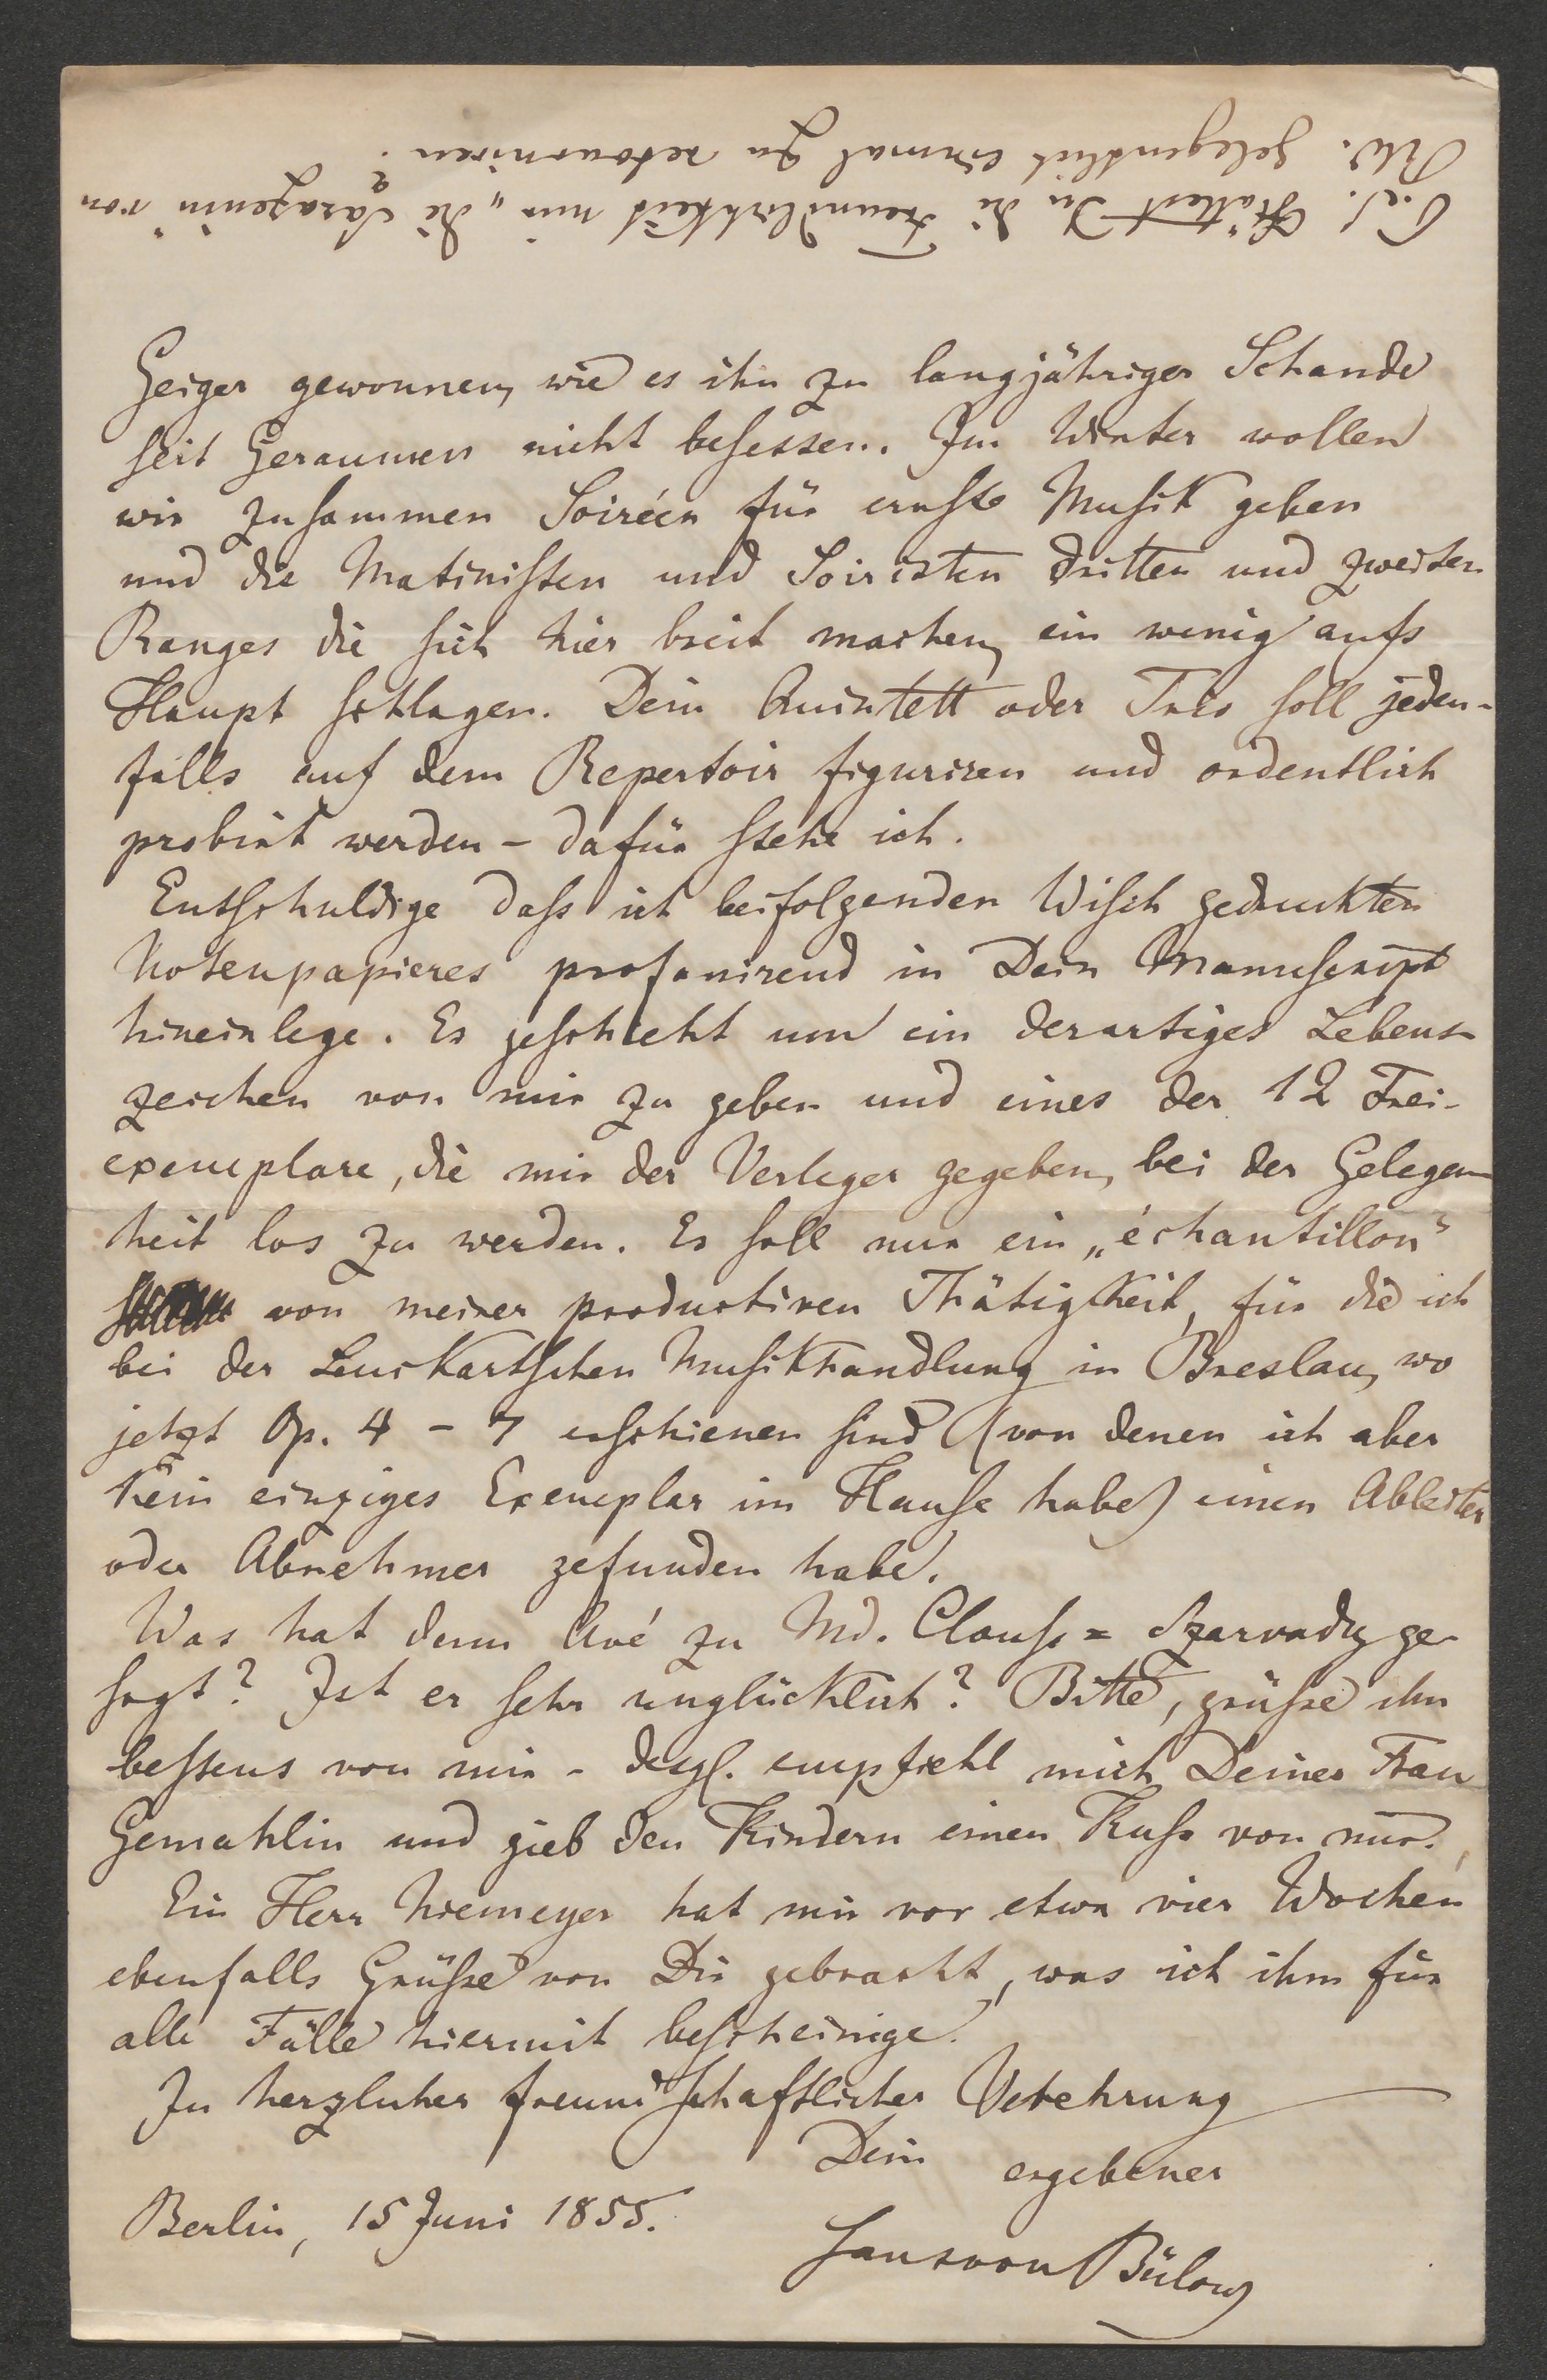 Geiger gewonnen, wie es ihn zu langjähriger Schande
seit Geraumem nicht besessen. Im Winter wollen
wir zusammen Soiréen für ernste Musik geben
und die Matinisten und Soiristen dritten und zweiten
Ranges die sich hier breit machen, ein wenig aufs
Haupt schlagen. Dein Quintett oder Trio soll jeden-
falls auf dem Repertoir figuriren und ordentlich
probirt werden – dafür stehe ich.
Entschuldige dass ich beifolgenden Wisch gedruckten
Notenpapieres profanirend in Dein Manuscript
hineinlege. Es geschieht um ein derartiges Lebens-
zeichen von mir zu geben und eines der 12 Frei-
exemplare, die mir der Verleger gegeben, bei der Gelegen-
heit los zu werden. Es soll nur ein „échantillon“
von meiner productiven Thätigkeit, für die ich
bei der Leuckartschen Musikhandlung in Breslau, wo
jetzt Op. 4 – 7 erschienen sind (von denen ich aber
kein einziges Exemplar im Hause habe) einen Ableiter
oder Abnehmer gefunden habe.
Was hat denn Avé zu Md. Clauss = Szarvady ge-
sagt? Ist er sehr unglücklich? Bitte, grüsse ihn
bestens von mir – desgl. empfiehl mich Deiner Frau
Gemahlin und gieb den Kindern einen Kuss von mir.
Ein Herr Niemeyer hat mir vor etwa vier Wochen
ebenfalls Grüsse von Dir gebracht, was ich ihm für
alle Fälle hiermit bescheinige.
In herzlicher freundschaftlicher Verehrung
Dein ergebener
Berlin, 15 Juni 1855.
Hans von Bülow
P.S. Hättest Du die Freundlichkeit mir „die Sarazenin“ von
RW. gelegentlich einmal zu retourniren?